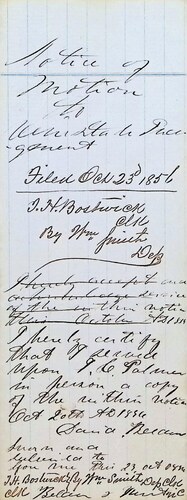 Notice of
Motion
to
Reinstate Judgement
Filed Oct 23d 1856
J. H. Bostwick
Clk
By Wm Smith
Dep
I hereby accept
of the within notice
this October AD 1856
I hereby certify
that I served
upon P. C. Palmer
in person a copy
of the within notice
Oct 20th AD 1856
David Belden
Sworn and
before me this 23 oct 1856
J. H. Bostwick By Wm Smith Dep Clk
Clk Belden &